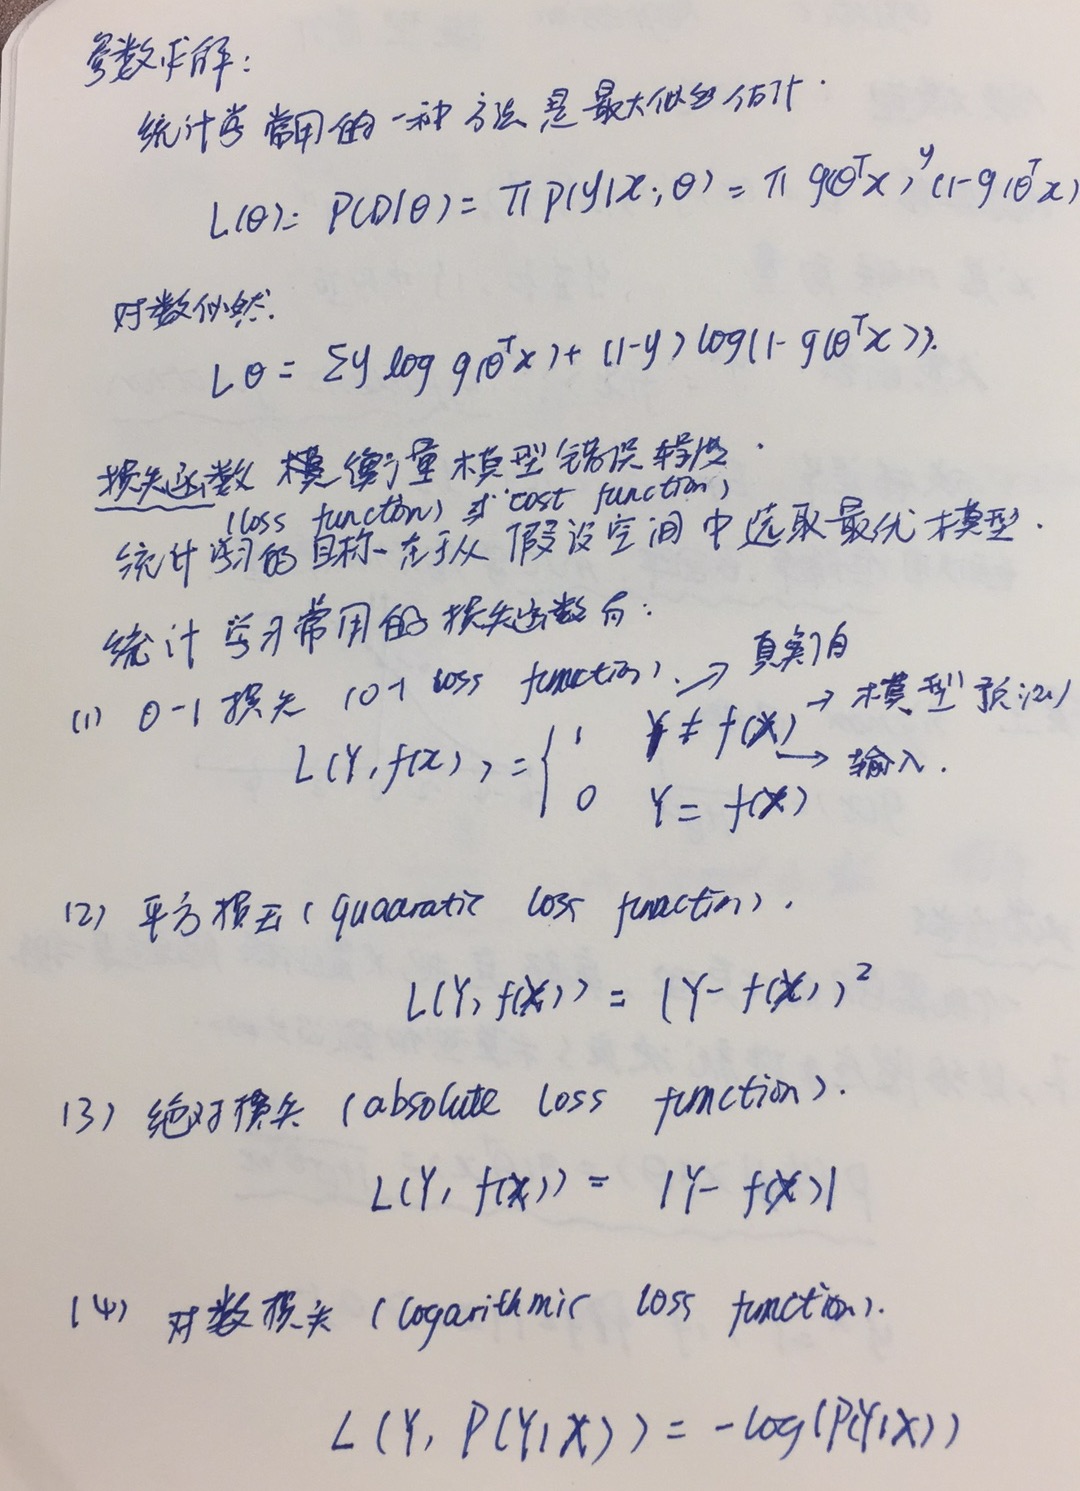 参数求解:
统计学常用的一种方法是最大似然估计.
L(θ)= P(D|θ) = π p(y|x;θ) = π g(θᵀx)ʸ (1-g(θᵀx)
对数似然.
Lθ = Σy log g(θᵀx) + (1-y) log(1-g(θᵀx)).
损失函数 衡量模型错误程度.
(loss function) 或 cost function)
统计学习的目标 在于从 假设空间中选取最优模型.
统计学习常用的损失函数有:
→ 真实值
(1) 0-1 损失 (0-1 loss function).
→ 模型预测
L(Y, f(x)) = { 1 Y ≠ f(X)
→ 输入.
0 Y = f(X)
(2) 平方损失 (quadratic loss function).
L(Y, f(X)) = (Y- f(X))²
(3) 绝对损失 (absolute loss function).
L(Y, f(X)) = |Y- f(X)|
(4) 对数损失 (logarithmic loss function).
L(Y, P(Y|X)) = -log(P(Y|X))